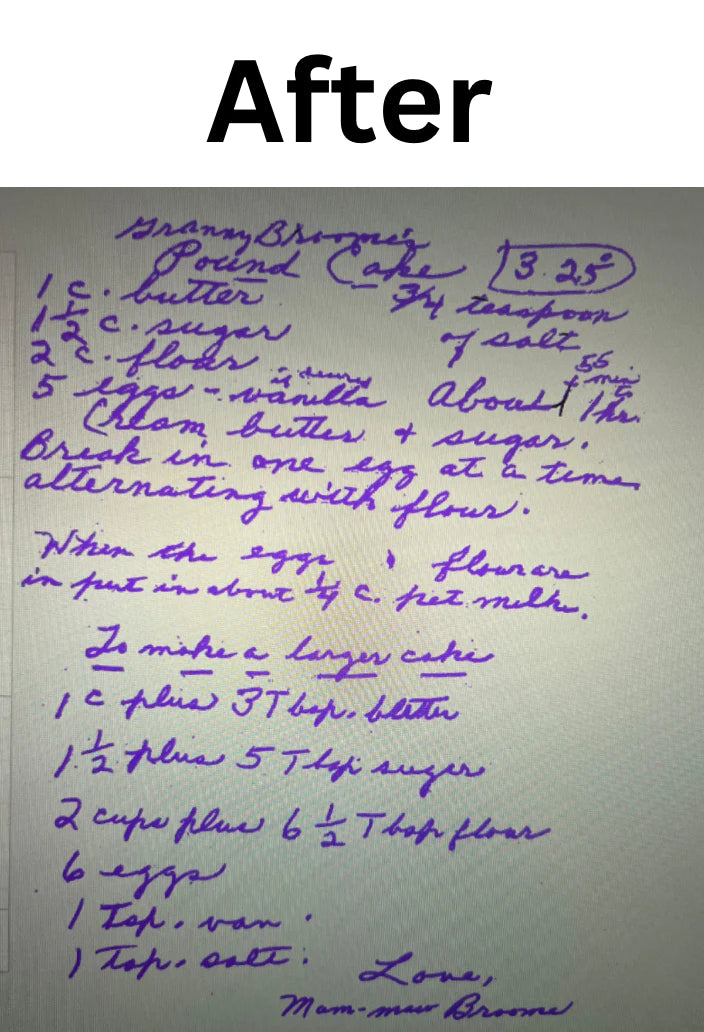 After
Granny Broome's
Pound Cake 325°
1 c. butter 3/4 teaspoon
1 1/2 c. sugar of salt
2 c. flour
5 eggs - vanilla if desired About 1 hr.
55 min to
Cream butter + sugar.
Break in one egg at a time
alternating with flour.
When the eggs & flour are
in put in about 1/4 c. pet milk.
To make a larger cake
1 c plus 3 Tbsp. butter
1 1/2 plus 5 Tbsp sugar
2 cups plus 6 1/2 Tbsp flour
6 eggs
1 Tsp. van.
1 Tsp. salt.
Love,
Mam-maw Broome